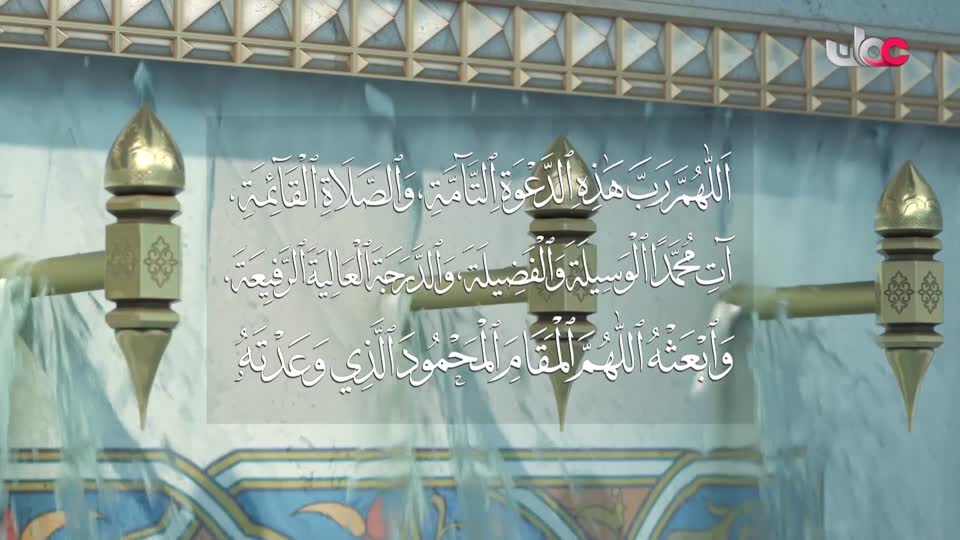 عمان
اَللّٰهُمَّ رَبَّ هَٰذِهِ ٱلدَّعْوَةِ ٱلتَّآمَّةِ، وَٱلصَّلَاةِ ٱلْقَآئِمَةِ،
آتِ مُحَمَّدًا ٱلْوَسِيلَةَ وَٱلْفَضِيلَةَ، وَٱلدَّرَجَةَ ٱلْعَالِيَةَ ٱلرَّفِيعَةَ،
وَٱبْعَثْهُ ٱللّٰهُمَّ ٱلْمَقَامَ ٱلْمَحْمُودَ ٱلَّذِي وَعَدْتَهُ